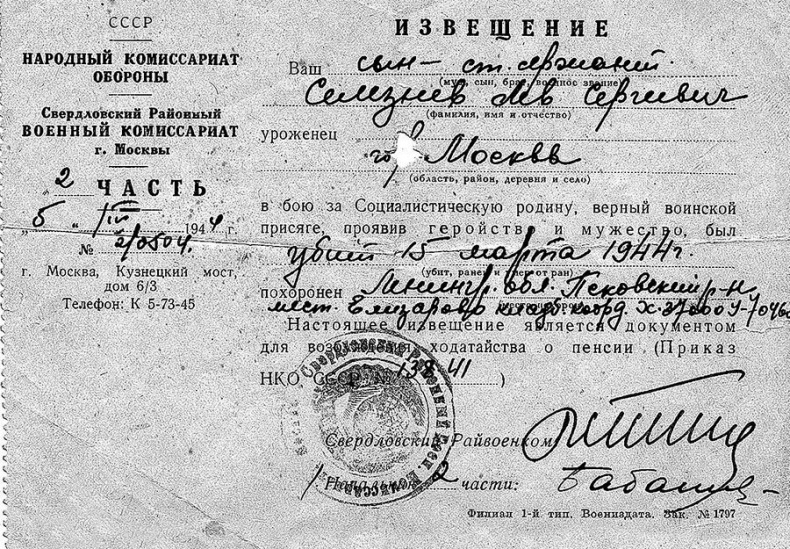 СССР
НАРОДНЫЙ КОМИССАРИАТ
ОБОРОНЫ
Свердловский Районный
ВОЕННЫЙ КОМИССАРИАТ
г. Москвы
2 ЧАСТЬ
"5" 1944 г.
№ 2/0504.
г. Москва, Кузнецкий мост,
дом 6/3
Телефон: К 5-73-45
ИЗВЕЩЕНИЕ
Ваш сын – ст. сержант
(муж, сын, брат, военное звание)
Селезнев Лев Сергеевич
(фамилия, имя и отчество)
уроженец
гор. Москвы
(область, район, деревня и село)
в бою за Социалистическую родину, верный воинской
присяге, проявив геройство и мужество, был
убит 15 марта 1944 г.
(убит, ранен и умер от ран)
похоронен Ленингр. обл. Псковский р-н
мест. Елизарово коорд. Х.
Настоящее извещение является документом
для возбуждения ходатайства о пенсии (Приказ
НКО СССР № 138 41)
Свердловский Райвоенком
Начальник 2 части:
Филиал 1-й тип. Воениздата. Зак. № 1797